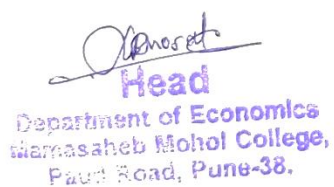 Head
Department of Economics
Mamasaheb Mohol College,
Paud Road, Pune-38.